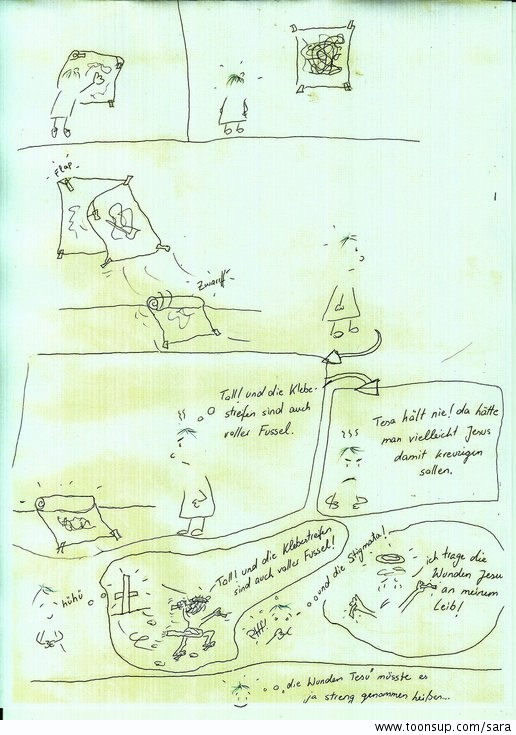 Flap
Zwariff
Toll! und die Klebe-
streifen sind auch
voller Fussel.
Tesa hält nie! da hätte
man vielleicht Jesus
damit kreuzigen
sollen.
hühü
Toll! und die Klebestreifen
sind auch voller Fussel!
Pfff!
und die Stigmata!
ich trage die
Wunden Jesu
an meinem
Leib!
"die Wunden Tesu" müsste es
ja streng genommen heißen...
www.toonsup.com/sara